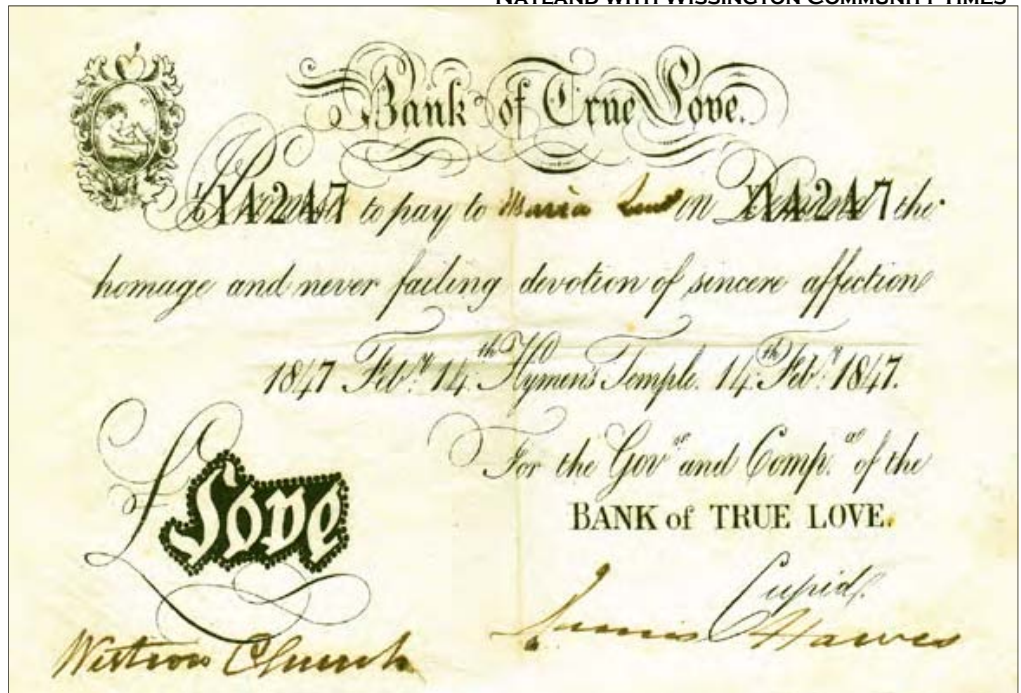 NAYLAND WITH WISSINGTON COMMUNITY TIMES
Bank of True Love.
I Promise to pay to Maria on Demand the
14247 14247
homage and never failing devotion of sincere affection
1847 Feb.y 14.th Hymens Temple. 14.th Feb.y 1847.
For the Gov.or and Comp.a of the
£ Love
BANK of TRUE LOVE.
Cupid.
James Hawes
Wiston Church